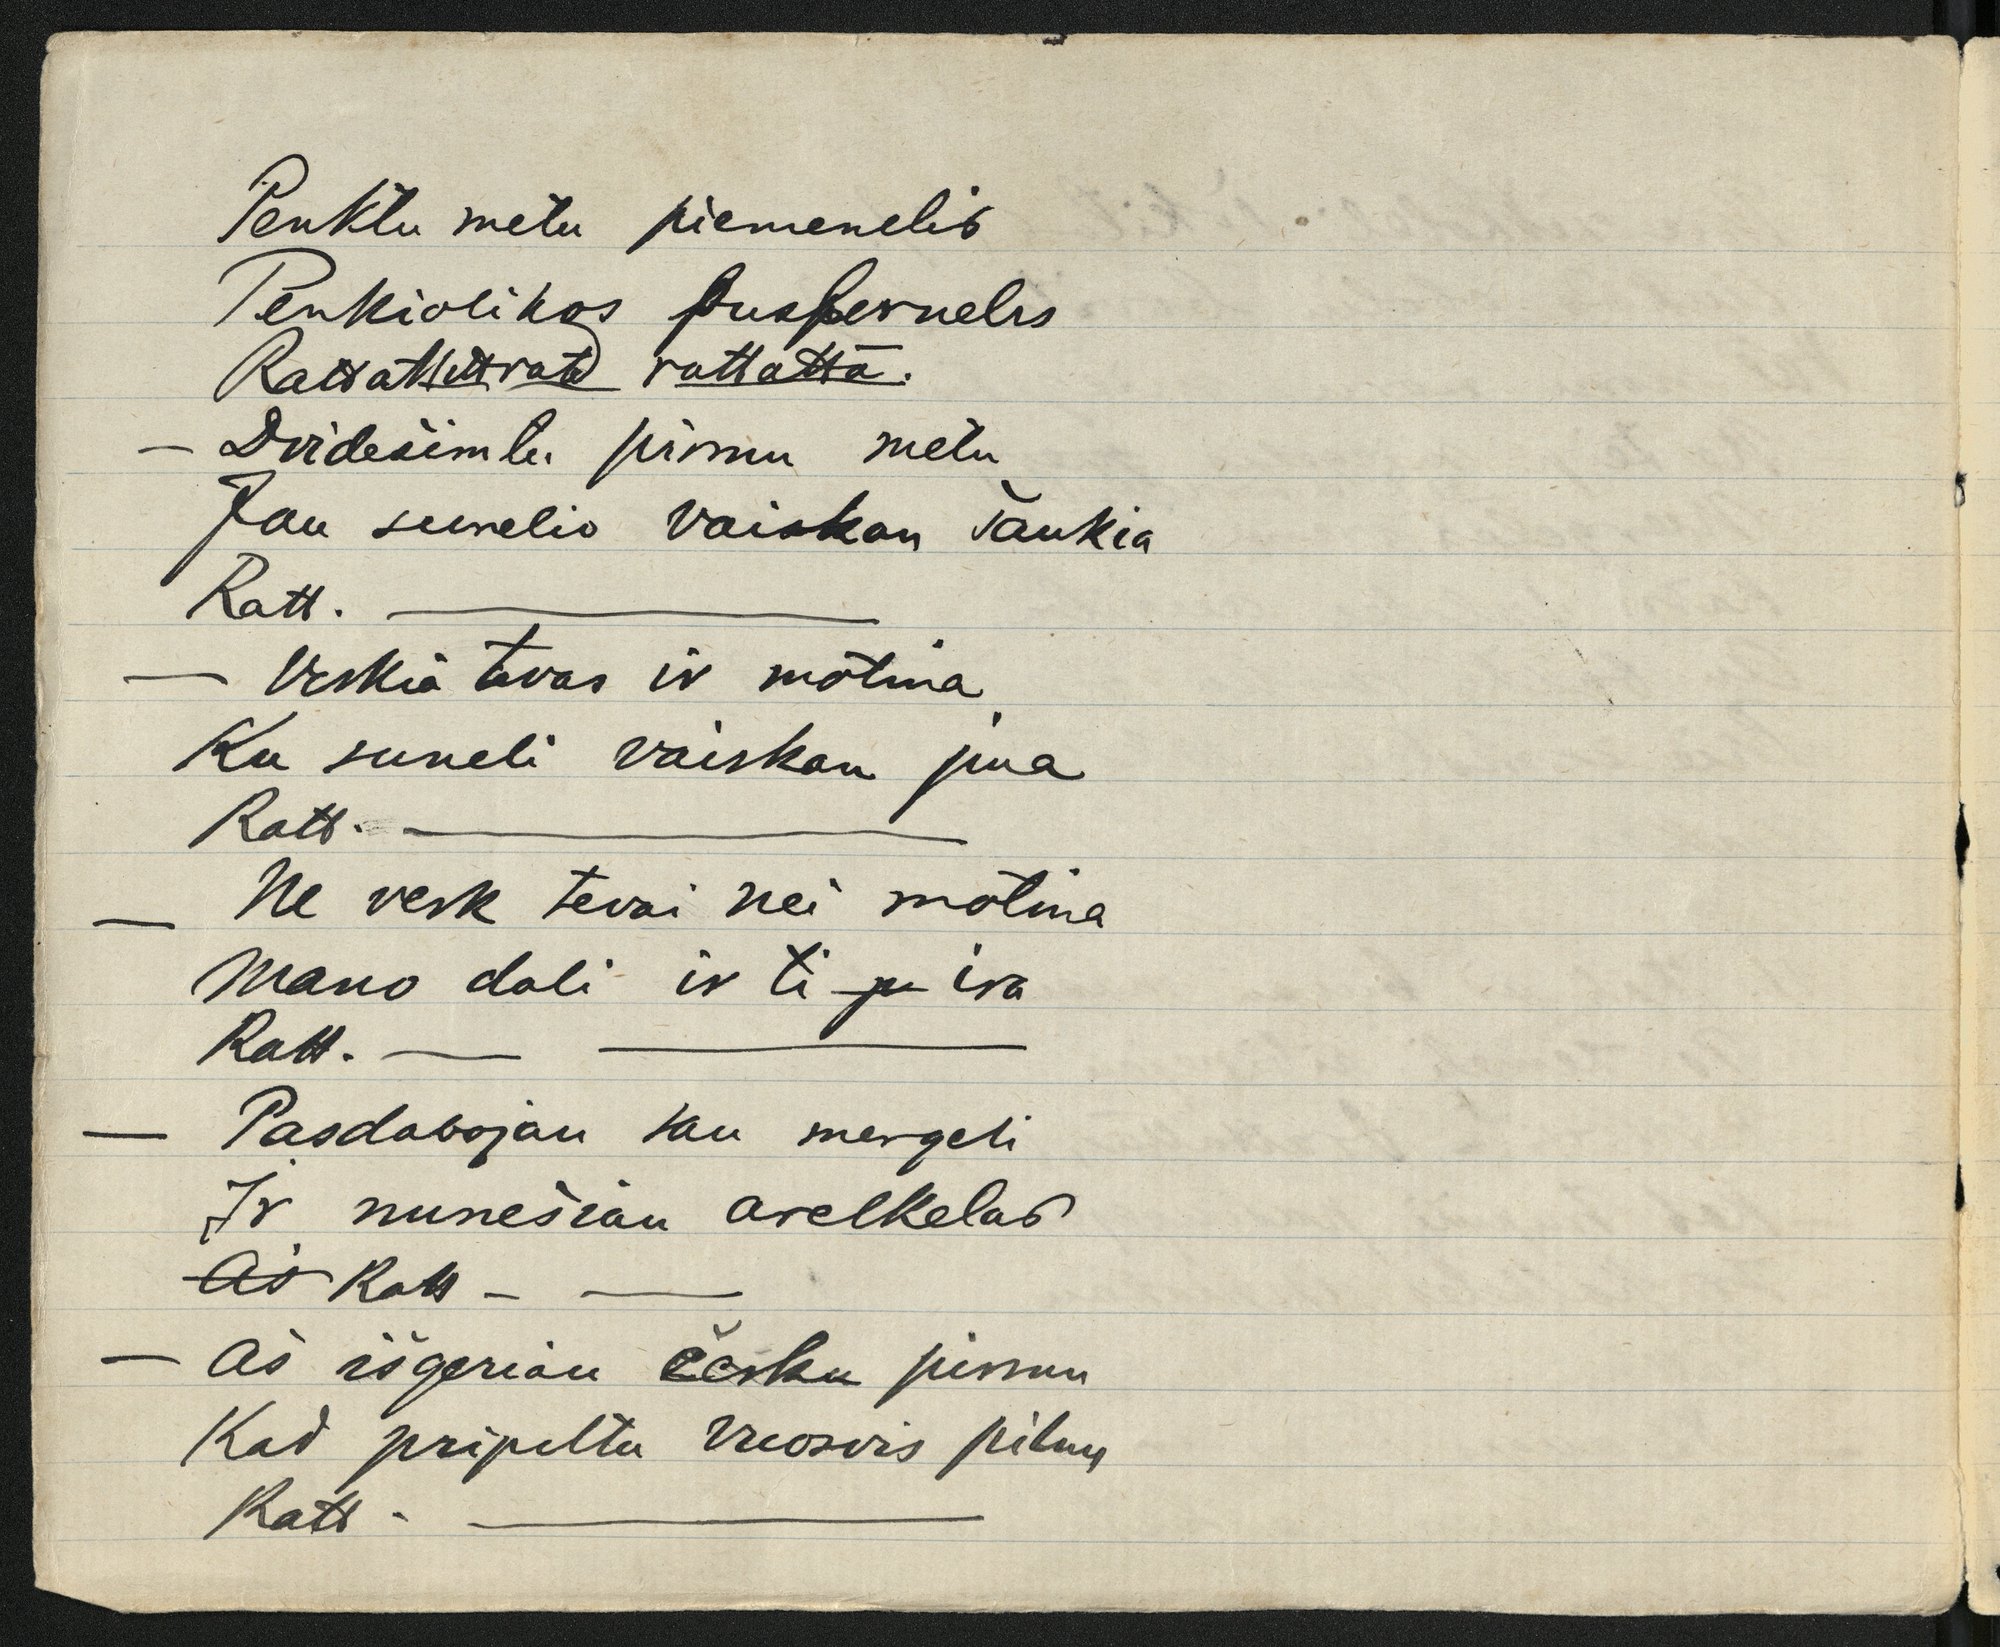 Penktu metu piemenelis
Penkiolikos puspernelis
rattatta.
— Dvidešimtu pirmu metu
Jau sunelio vaiskan šaukia
Ratt. ——
— Verkia tevas ir motina
Ku suneli vaiskan jima
Ratt. ——
— Ne verk tevai nei motina
Mano dali ir ti ira
Ratt. — ——
— Pasdabojau sau mergeli
Ir nunešiau arelkelas
Aš Ratt — ——
— Aš išgeriau čerku pirmu
Kad pripeltu vuosvis pilnu
Ratt - ——